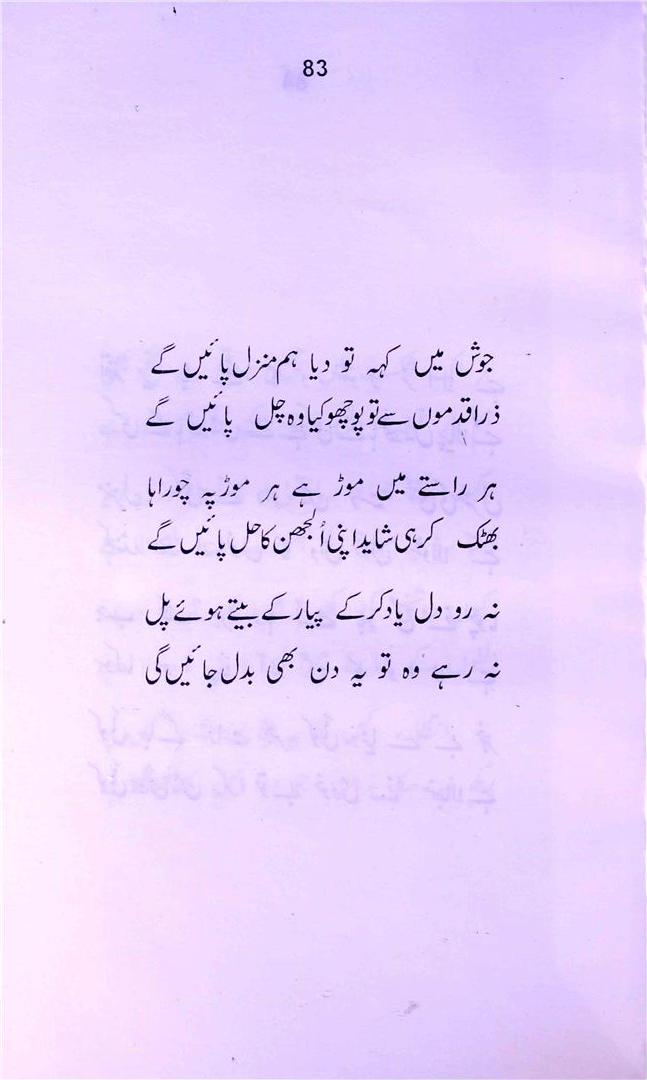 83
جوش میں کہہ تو دیا ہم منزل پائیں گے
ذرا قدموں سے تو پوچھو کیا وہ چل پائیں گے
ہر راستے میں موڑ ہے ہر موڑ پہ چوراہا
بھٹک کر ہی شاید اپنی اُلجھن کا حل پائیں گے
نہ رو دل یاد کر کے پیار کے بیتے ہوئے پل
نہ رہے وہ تو یہ دن بھی بدل جائیں گی